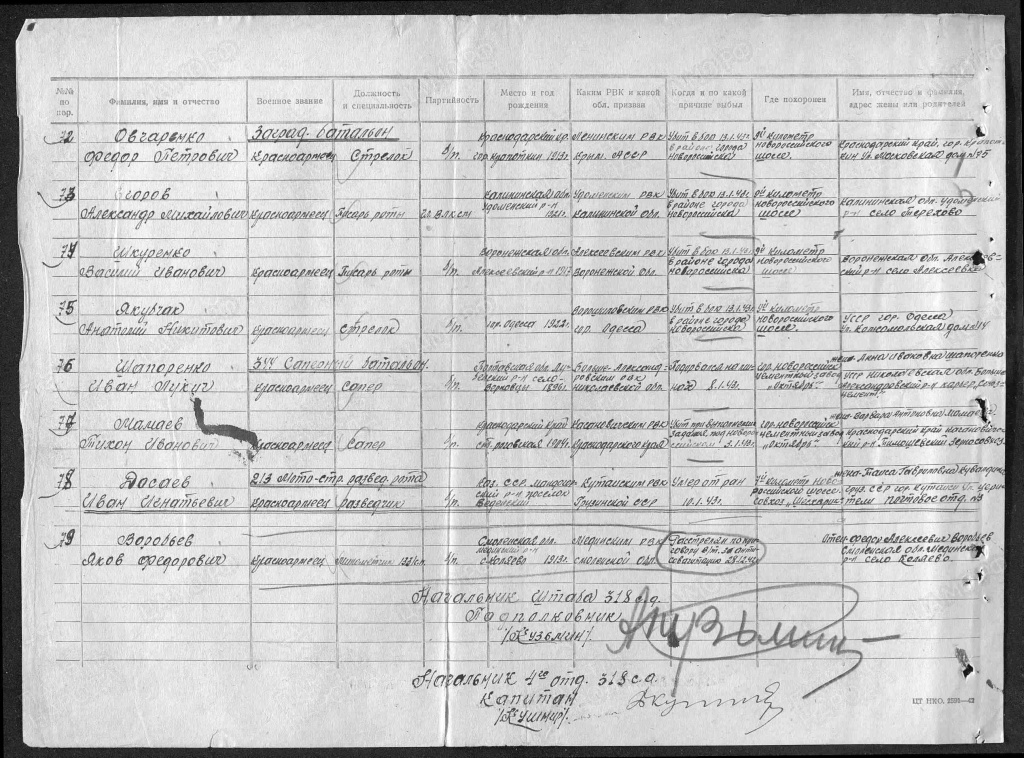 №№ по пор.
Фамилия, имя и отчество
Военное звание
Должность и специальность
Партийность
Место и год рождения
Каким РВК и какой обл. призван
Когда и по какой причине выбыл
Где похоронен
Имя, отчество и фамилия, адрес жены или родителей
72 Овчаренко Заград. батальон Краснодарский кр. Ленинским РВК Убит в бою 13.1.43г. 9й километр
Федор Петрович Красноармеец Стрелок б/п. гор. Кропоткин 1913г. Крым. АССР в районе города Новороссийска новороссийского шоссе. Краснодарский край, гор. Кропоткин ул. Московская дом №75
73 Егоров Калининская обл. Удоменским РВК Убит в бою 13.1.43г. 9й километр
Александр Михайлович Красноармеец Писарь роты чл. ВЛКСМ Удоменский р-н Калининской обл. в районе города новороссийска новороссийского шоссе Калининская обл. Удомский р-н село Терехово
74 Шкуренко Воронежская обл. Алексеевским РВК Убит в бою 13.1.43г. 9й километр
Василий Иванович Красноармеец Писарь роты б/п. Алексеевский р-н 1917 Воронежской обл. в районе города новороссийска новороссийского шоссе Воронежская обл. Алексеевский р-н село Алексеевка
75 Якубчак Ворошиловским РВК Убит в бою 13.1.43г. 9й километр
Анатолий Никитович Красноармеец Стрелок б/п. гор. Одесса 1922г. гор. Одесса в районе города Новороссийска новороссийского шоссе. УССР гор. Одесса ул. Комсомольская дом №14
76 Шапоренко 344 Саперный батальон. Полтавская обл. РВК Подорвался на мине гор. Новороссийск жена-Анна Ивановна Шапоренко
Иван Лукич Красноармеец Сапер б/п. 1896г. Николаевской обл. 8.1.43г. цементный завод "Октябрь" УССР Николаевская обл.
77 Мамаев Краснодарский край Кагановичским РВК Убит при выполнении гор. Новороссийск жена-Варвара Антоновна Мамаева.
Тихон Иванович Красноармеец Сапер б/п. 1904г. Краснодарского края задания под 3.1.43г. цементный завод "Октябрь" Краснодарский край
78 Дасаев 213 Мото-стр. развед. рота Каз. ССР. Кутаиским РВК Умер от ран 9й километр Новороссийского шоссе
Иван Игнатьевич Красноармеец разведчик б/п. р-н поселок Грузинской ССР 10.1.43г. совхоз Груз. ССР гор. Кутаиси почтовое отд. №3
79 Воробьев Смоленская обл. Мединским РВК Расстрелян по приговору 28.12.42 Отец-Федор Алексеевич Воробьев
Яков Федорович Красноармеец Минометчик б/п. Мединский р-н с. Коляево 1919г. Смоленской обл. Смоленская обл. Мединский р-н село Коляево.
Начальник Штаба 318 с.д.
Подполковник
/Кузьмин/.
АКузьмин
Начальник 4го отд. 318 с.д.
Капитан
/Кушнир/.
ЦТ НКО. 2591—42